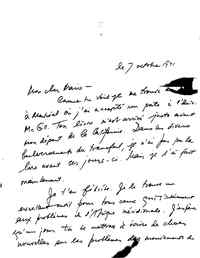 le 7 octobre
Mon cher
Comme tu vois je me trouve
à Montréal où j'ai accepté un poste à
McGill. Ton livre m'est arrivé juste avant
mon départ de la Californie. Dans les divers
bouleversements du transfert, je n'ai pu le
lire avant ces jours-ci. Mais je l'ai fait
maintenant.
Je t'en félicite. Je le trouve un
pour tous ceux qui s'intéressent
aux problèmes de l'Afrique méridionale. J'espère
qu'un jour tu te mettras à écrire de choses
nouvelles sur les problèmes des mouvements de